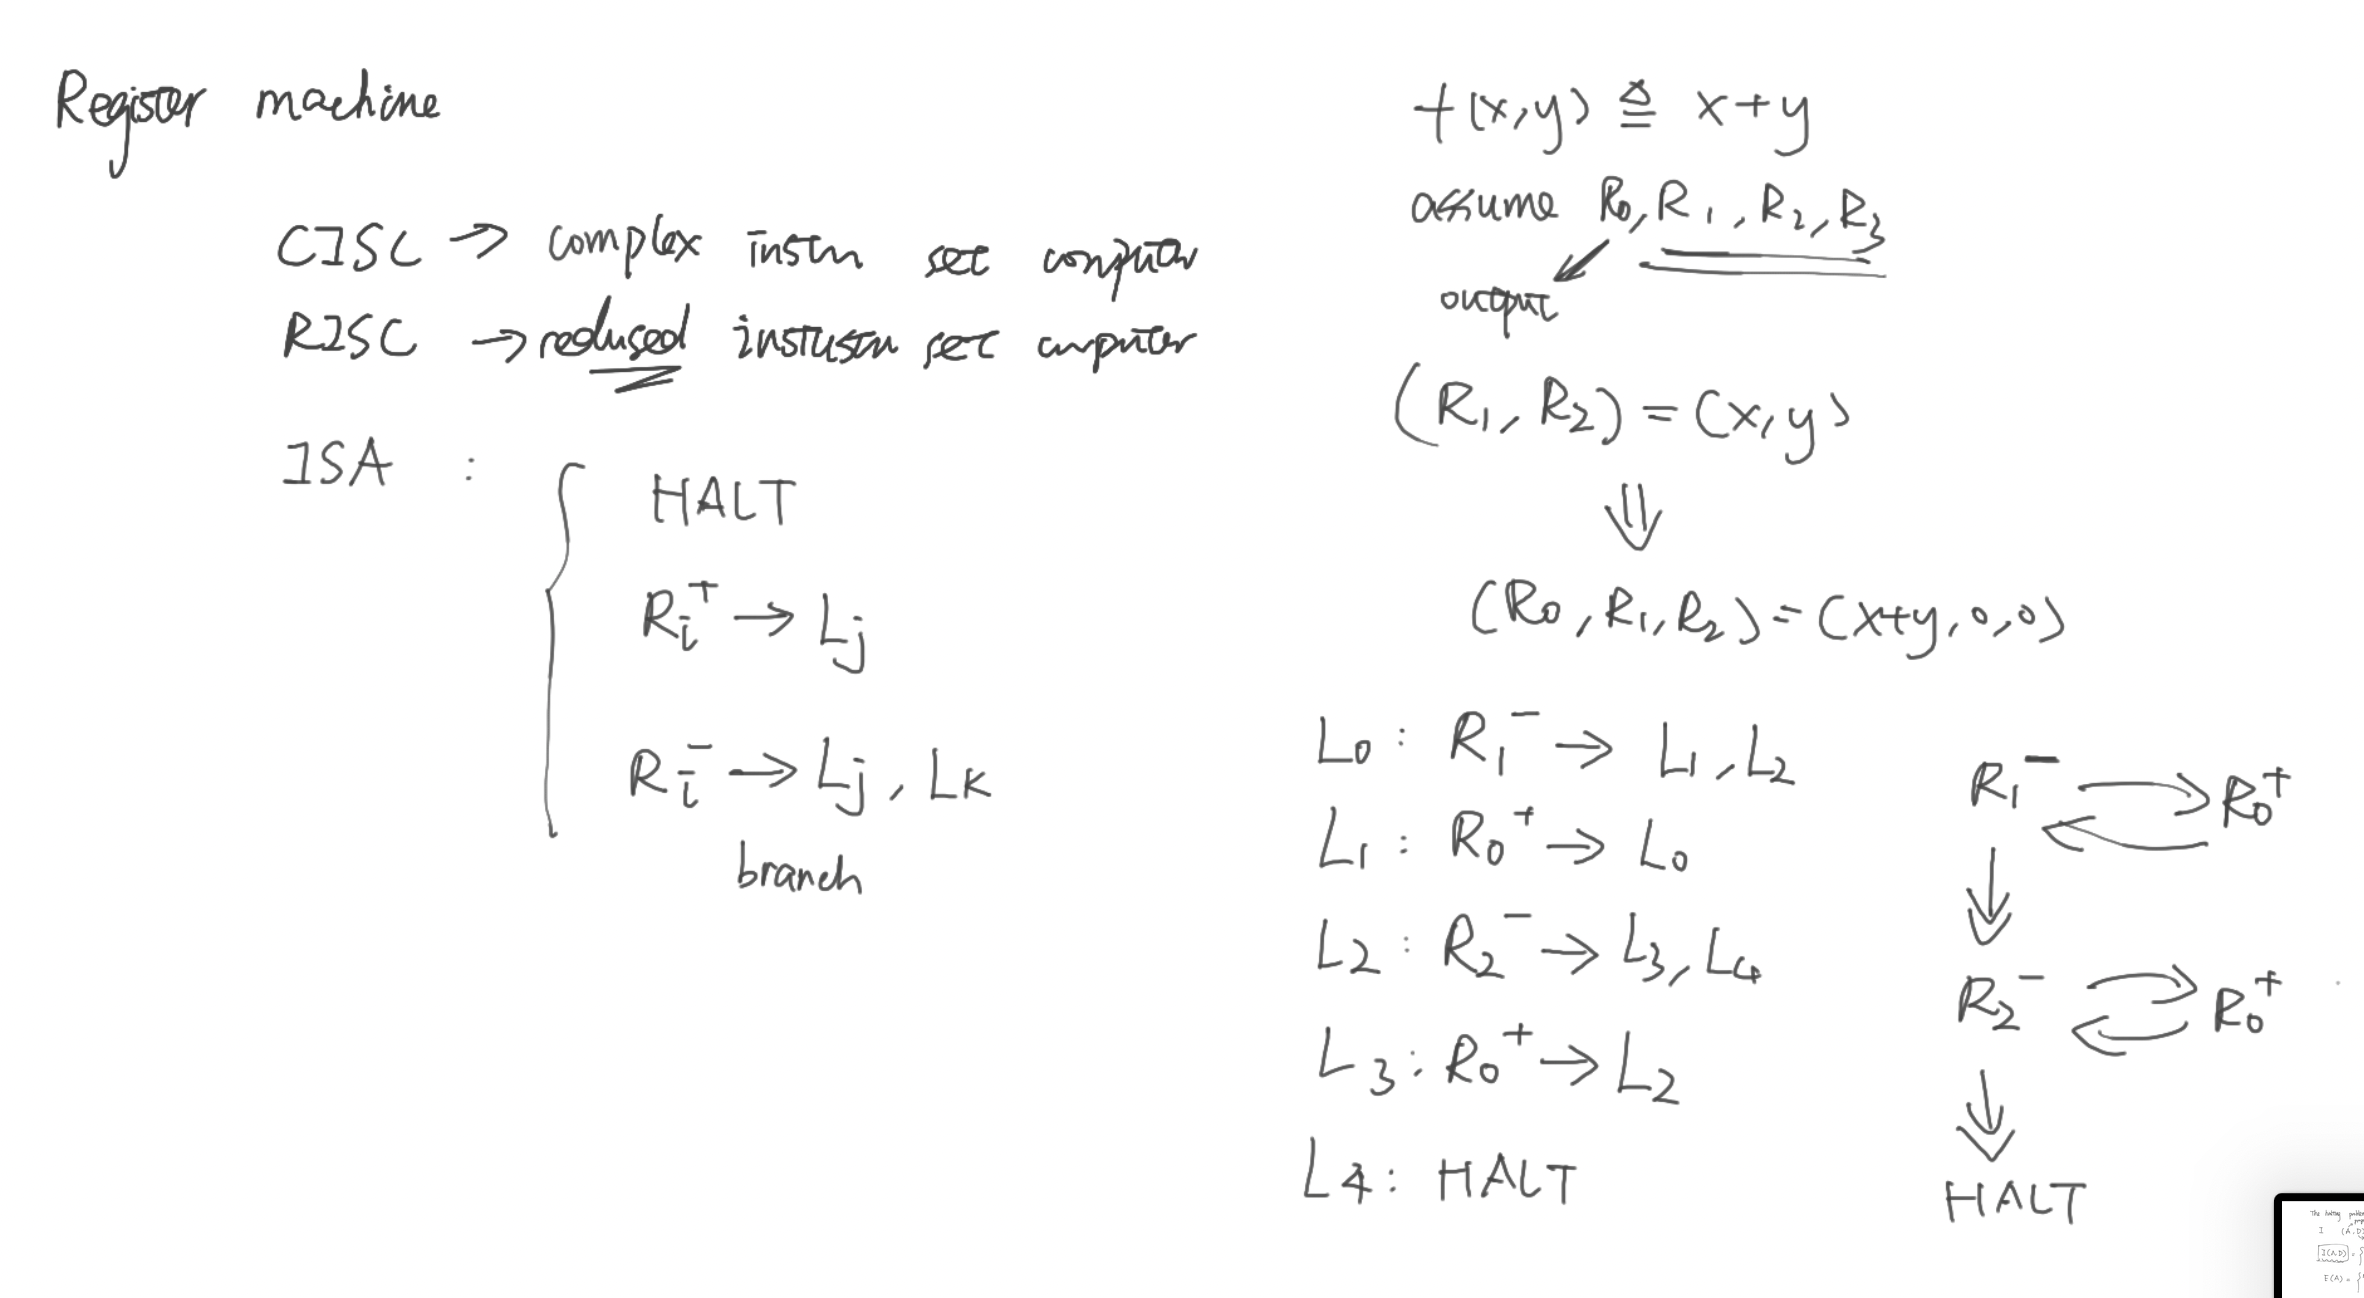 Register machine
CISC → complex instrn set computer
RISC → redused instrustrn set computer
ISA :
HALT
Ri⁺ → Lj
Ri⁻ → Lj, Lk
branch
f(x,y) ≜ x+y
assume R₀, R₁, R₂, R₃
output
(R₁, R₂) = (x,y)
⇓
(R₀, R₁, R₂) = (x+y, 0, 0)
L₀ : R₁⁻ → L₁, L₂
L₁ : R₀⁺ → L₀
L₂ : R₂⁻ → L₃, L₄
L₃ : R₀⁺ → L₂
L₄ : HALT
R₁⁻ R₀⁺
R₂⁻ R₀⁺
HALT
The halting
I (A,D)
I(A,D) = {
E(A) = {